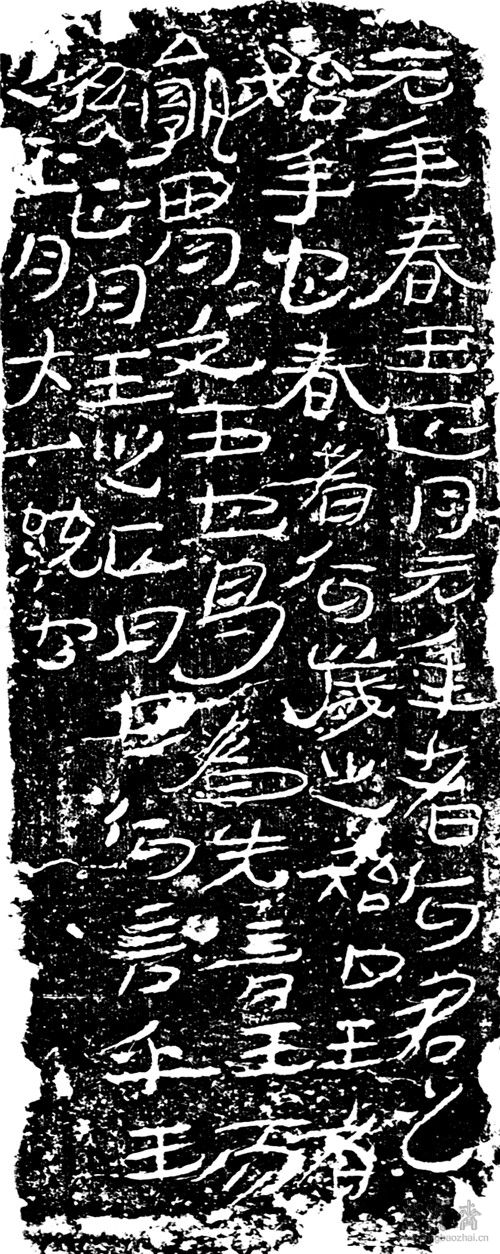 元年春王正月元年者何君之
始年也春者何歲之始也王者
孰胃=文王也曷為先言王而
後正月王之正月也何言乎王
之正月大一統也
gbaozhai.cn